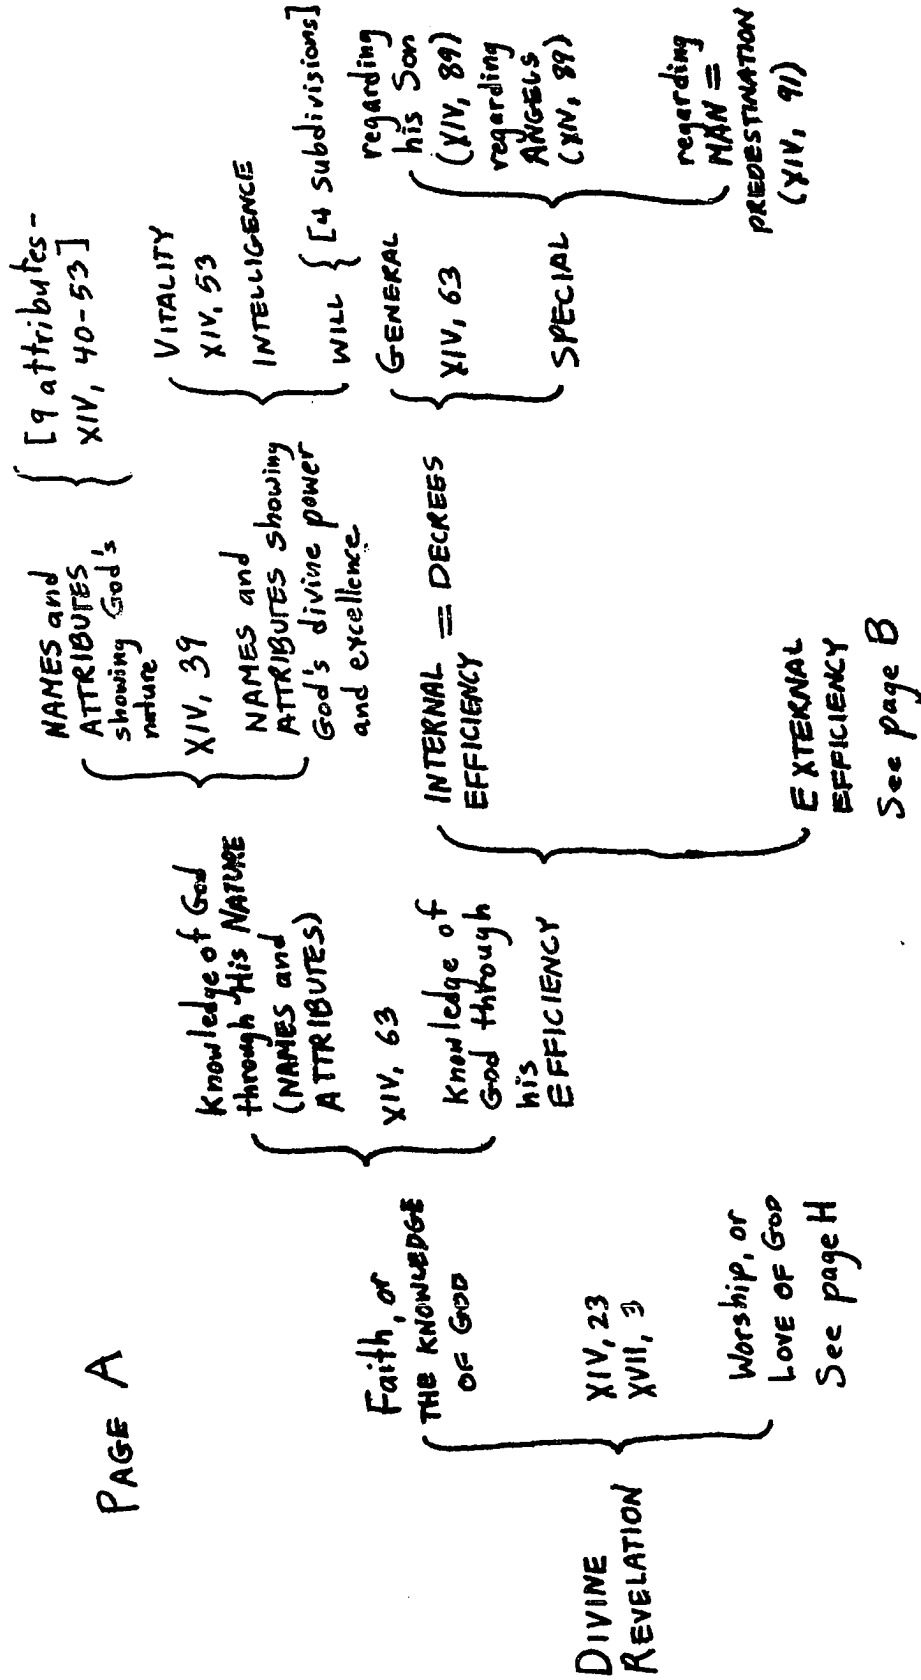 PAGE A
DIVINE
REVELATION
Faith, or
THE KNOWLEDGE
OF GOD
XIV, 23
XVII, 3
Worship, or
LOVE OF GOD
See page H
Knowledge of God
through His NATURE
(NAMES and
ATTRIBUTES)
XIV, 63
Knowledge of
God through
his
EFFICIENCY
NAMES and
ATTRIBUTES
showing God's
nature
XIV, 39
NAMES and
ATTRIBUTES showing
God's divine power
and excellence
INTERNAL = DECREES
EFFICIENCY
EXTERNAL
EFFICIENCY
See page B
[9 attributes-
XIV, 40-53]
VITALITY
XIV, 53
INTELLIGENCE
WILL { [4 subdivisions]
GENERAL
XIV, 63
SPECIAL
regarding
his Son
(XIV, 89)
regarding
ANGELS
(XIV, 89)
regarding
MAN =
PREDESTINATION
(XIV, 91)